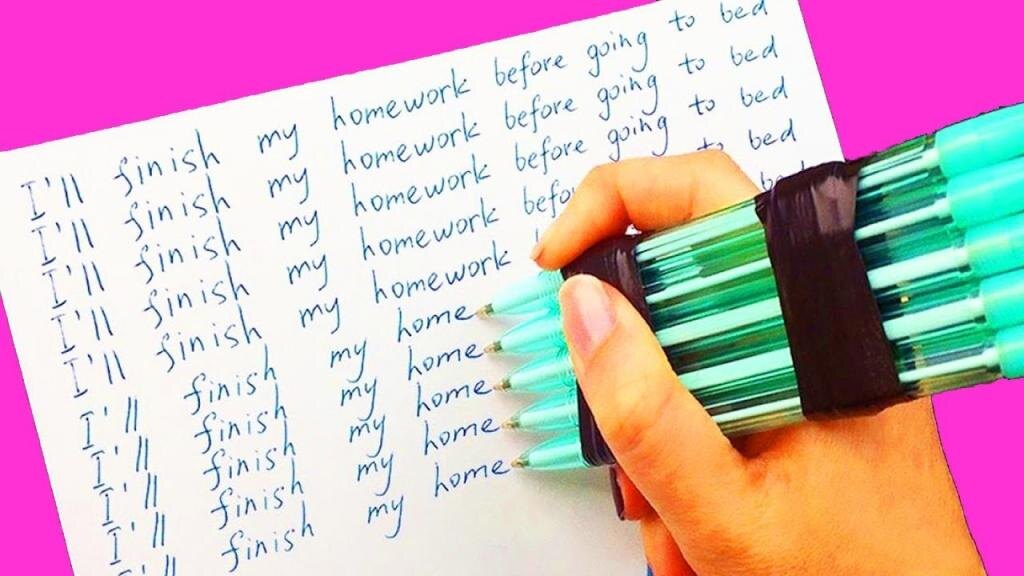 I'll finish my homework before going to bed
I'll finish my homework before going to bed
I'll finish my homework before going to bed
I'll finish my homework bed
I'll finish my homework
I'll finish my home
I'll finish my home
I'll finish my home
I'll finish my home
I'll finish my home